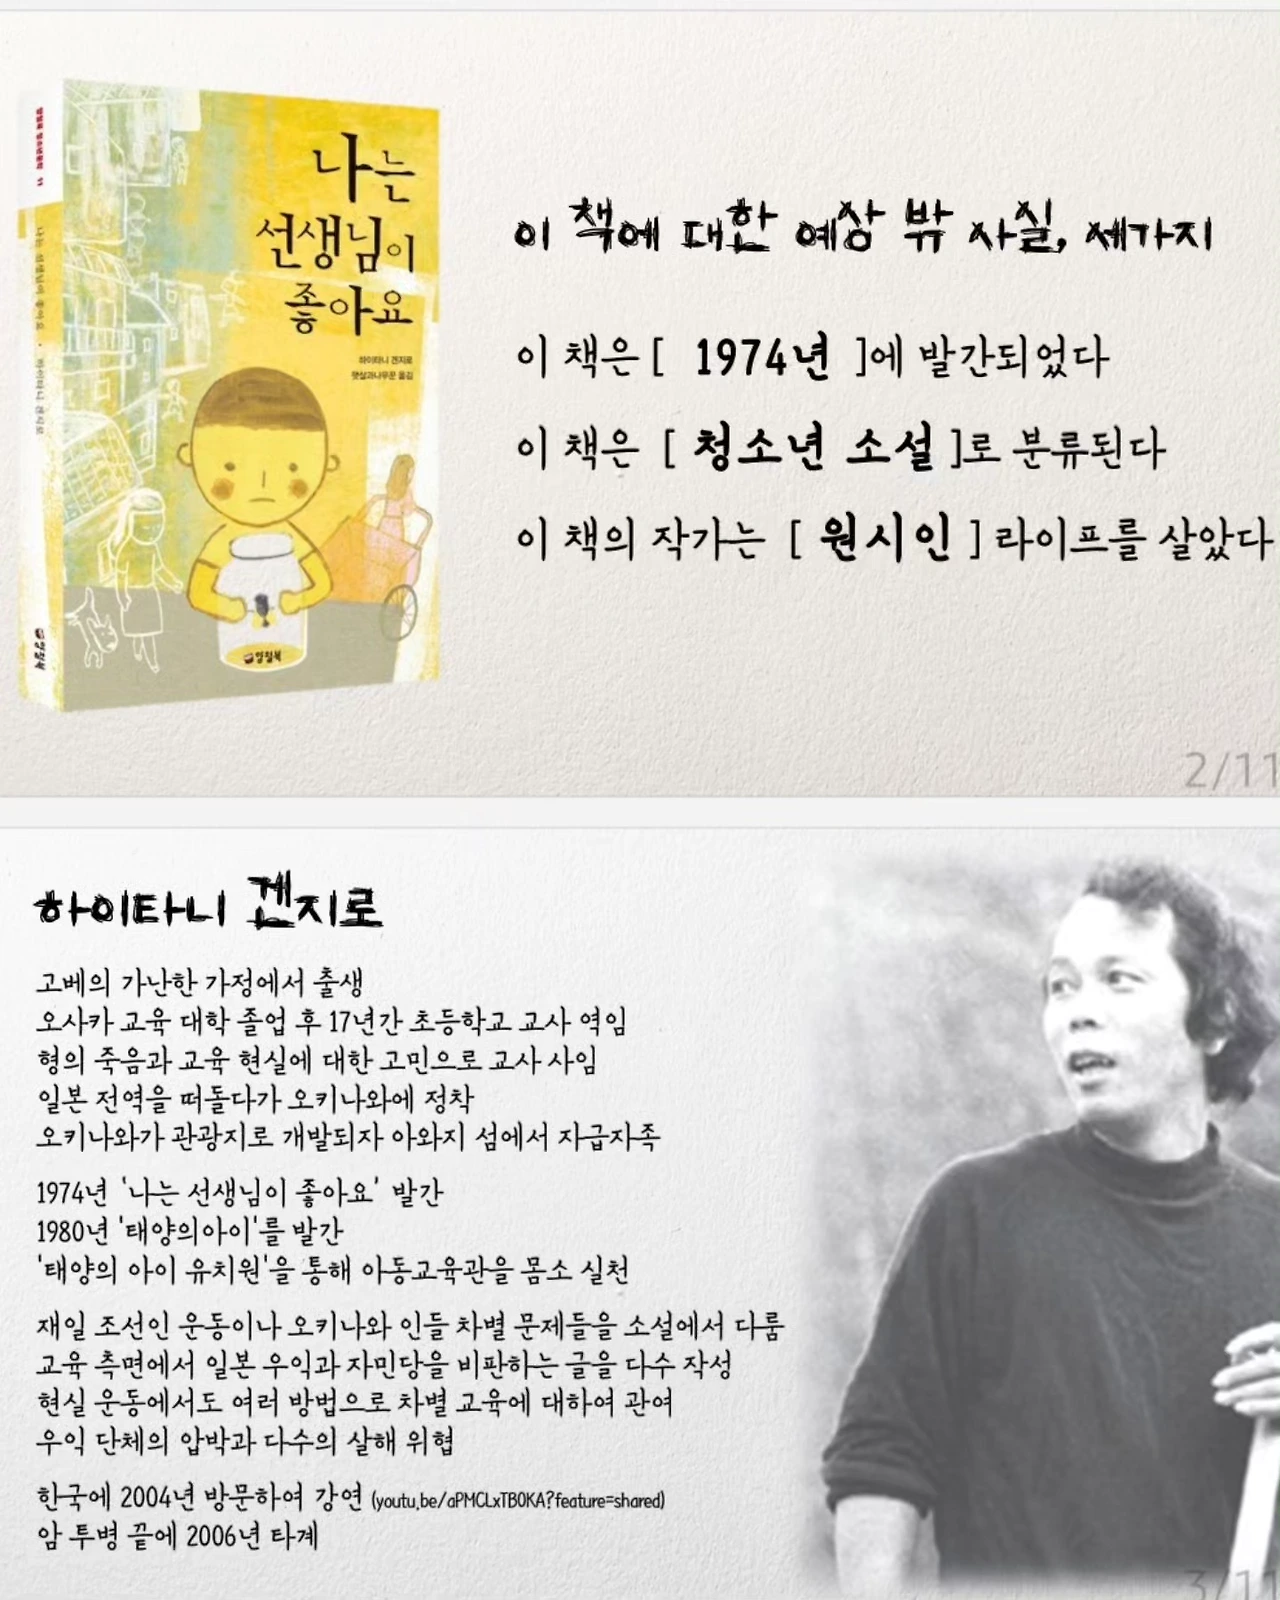 양철북 청소년문학 11
나는 선생님이 좋아요 · 하이타니 겐지로
양철북
나는
선생님이
좋아요
하이타니 겐지로
햇살과나무꾼 옮김
양철북
이 책에 대한 예상 밖 사실, 세가지
이 책은 [ 1974년 ]에 발간되었다
이 책은 [ 청소년 소설 ]로 분류된다
이 책의 작가는 [ 원시인 ] 라이프를 살았다
2/11
하이타니 겐지로
고베의 가난한 가정에서 출생
오사카 교육 대학 졸업 후 17년간 초등학교 교사 역임
형의 죽음과 교육 현실에 대한 고민으로 교사 사임
일본 전역을 떠돌다가 오키나와에 정착
오키나와가 관광지로 개발되자 아와지 섬에서 자급자족
1974년 '나는 선생님이 좋아요' 발간
1980년 '태양의아이'를 발간
'태양의 아이 유치원'을 통해 아동교육관을 몸소 실천
재일 조선인 운동이나 오키나와 인들 차별 문제들을 소설에서 다룸
교육 측면에서 일본 우익과 자민당을 비판하는 글을 다수 작성
현실 운동에서도 여러 방법으로 차별 교육에 대하여 관여
우익 단체의 압박과 다수의 살해 위협
한국에 2004년 방문하여 강연 (youtu.be/aPMCLxTB0KA?feature=shared)
암 투병 끝에 2006년 타계
3/11